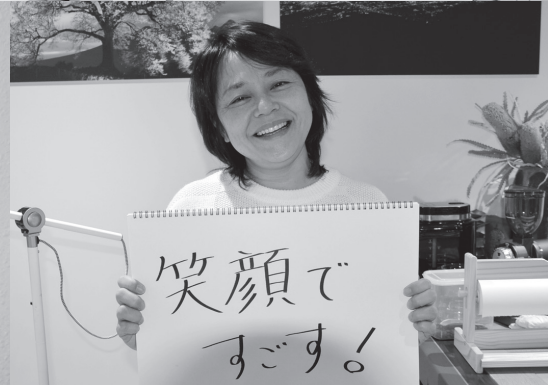 笑顔で
すごす!